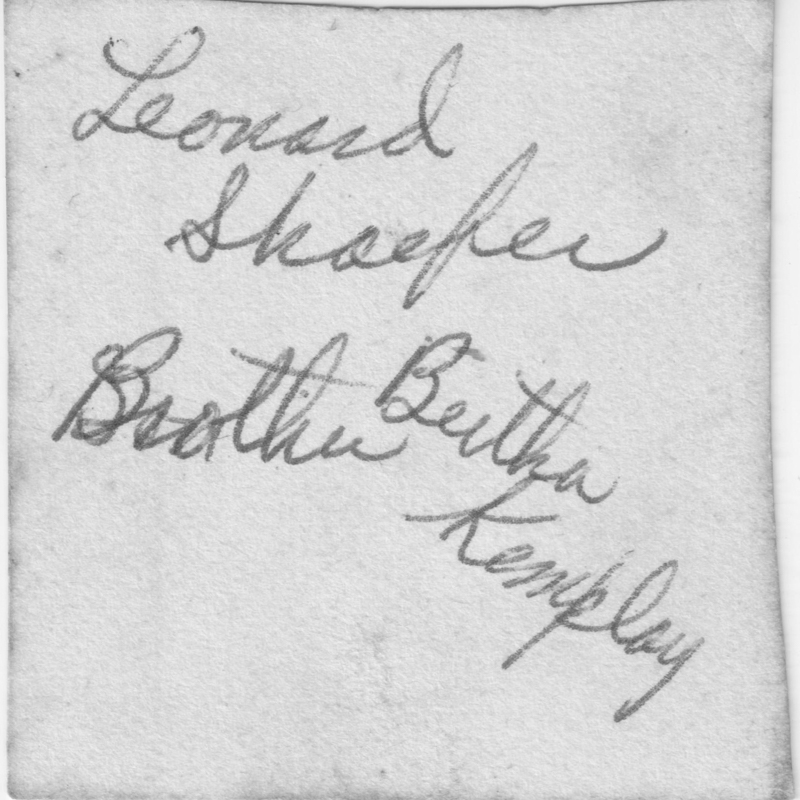 Leonard
Shaefer
Brother Bertha
Kemplay